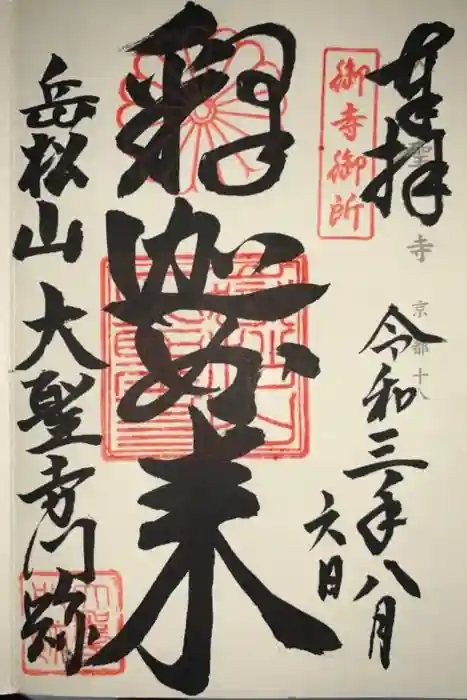 奉拝
聖 寺 京都十八
御寺御所
令和三年八月
六日
釈迦如来
岳松山 大聖寺門跡